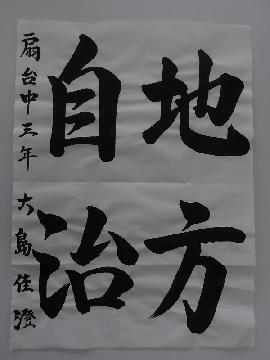 地方
自治
扇台中三年 大島佳澄